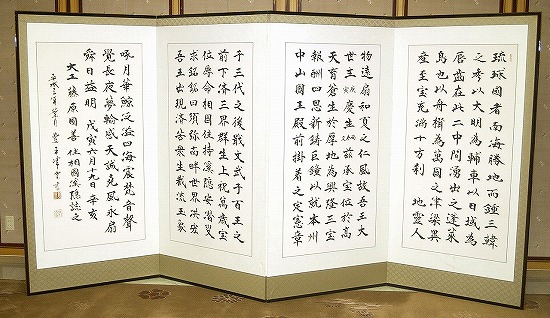 琉球國者南海勝地而鍾三韓
之秀以大明為輔車以日域為
唇齒在此二中間湧出之蓬萊
島也以舟楫為萬國之津梁異
產至宝充滿十方刹 地靈人
物遠扇和夏之仁風故吾王大
世主庚寅慶生尚泰久茲承宝位於高
天育蒼生於厚地為興隆三宝
報酬四恩新鑄巨鐘以就本州
中山國王殿前掛着之定憲章
于三代之後戢文武于百王之
前下濟三界群生上祝萬歲宝
位辱命相國住持溪隱安潛叟
求銘銘曰須弥南畔世界洪宏
吾王出現濟苦衆生截流玉象
吼月華鯨泛溢四海震梵音聲
覺長夜夢輸感天誠堯風永扇
舜日益明 戊寅六月十九日辛亥
大工 藤原國善 住相國溪隱誌之